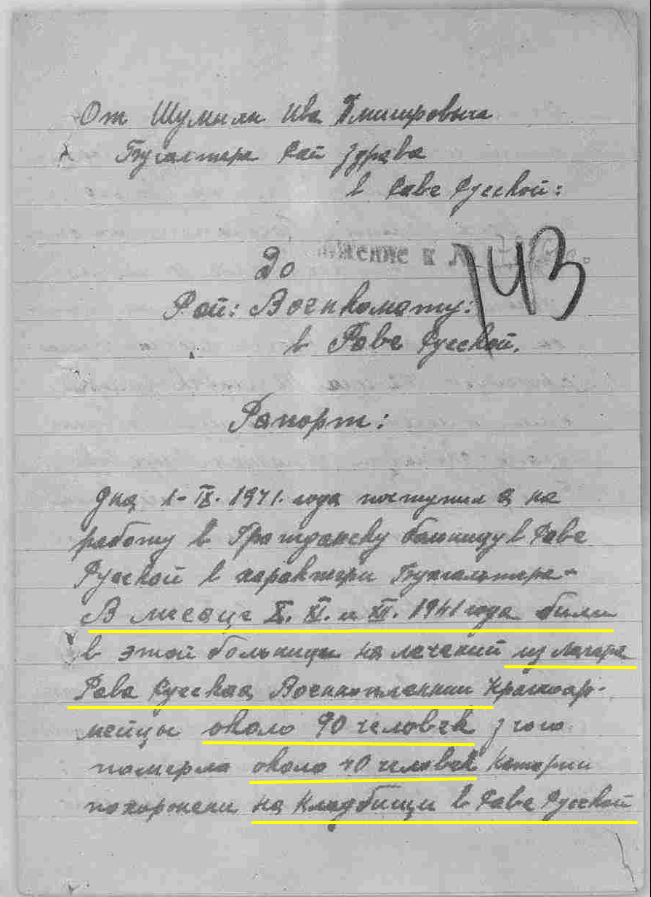 От Шумыли Ива Дмитровыча
Бугалтера Рай здрава
в Раве Русской:
жение к №
143
До
Рай: Военкомату:
в Раве Русской.
Рапорт:
Дна 1-IX. 1941. года поступил я на
работу в Гражданску больницу в Раве
Русской в характери Бухгальтера-
В месяце X. XI. и XII. 1941 года били
в этой больницы на лечений из лагера
Рава Русская Военнопленнии Красноар-
мейцы около 90 человек з чого
померло около 40 человек котории
похоронени на кладбищи в Раве Русской